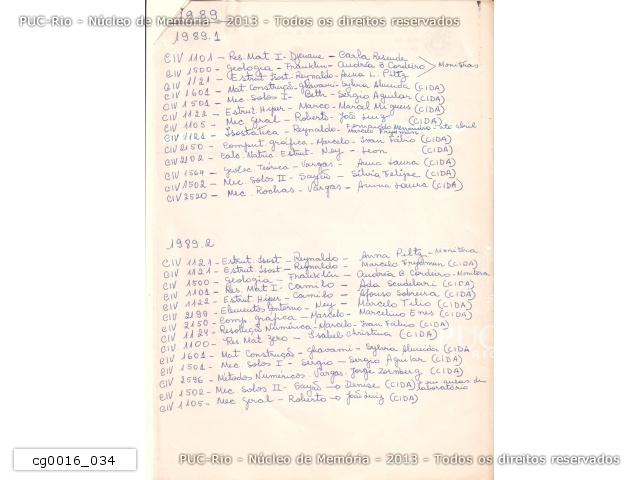 1989
PUC-Rio - Núcleo de Memória - 2013 - Todos os direitos reservados
1989.1
CIV 1101 - Res. Mat I - Djenane - Carla Resende
CIV 1500 - Geologia - Franklin - Andréa B Cordeiro > Monitoras
CIV 1121 - Estrut Isost. Reynaldo - Anna L. Piltz
CIV 1601 - Mat Construção - Ghavami - Sylvia Almeida (CIDA)
CIV 1501 - Mec Solos I - Sergio Aguilar (CIDA)
CIV 1122 - Estrut Hiper - Marco - Marcel Migues (CIDA)
CIV 1105 - Mec Geral - Roberto - João Luiz (CIDA)
CIV 1121 - Isostática - Reynaldo - Fernando - até abril
Marcelo Frydman
CIV 2150 - Comput gráfica - Marcelo - Ivan Fabio (CIDA)
CIV 2102 - Calc Matric Estrut. Ney - Leon (CIDA)
CIV 1564 - Teórica - Vargas - Anna Laura (CIDA)
CIV 1502 - Mec. Solos II - Sayão - Silvia Felipe (CIDA)
CIV 2520 - Mec Rochas - Vargas - Anna Laura (CIDA)
1989.2
CIV 1121 - Estrut. Isost - Reynaldo - Anna Piltz - Monitora
CIV 1121 - Estrut. Isost - Reynaldo - Marcelo Frydman (CIDA)
CIV 1500 - Geologia - Franklin - Andréa B Cordeiro - Monitora
CIV 1101 - Res. Mat I - Camilo - Ada Scudelari (CIDA)
CIV 1122 - Estrut Hiper - Camilo - Afonso Sobreira (CIDA)
CIV 2199 - Elementos Contorno - Ney - Marcelo Télio (CIDA)
CIV 2150 - Comp. gráfica - Marcelo - Marcelino Enes (CIDA)
CIV 1124 - Resolução Numérica - Marcelo - Ivan Fabio (CIDA)
CIV 1100 - Res Mat Zero - Isabel Christina (CIDA)
CIV 1601 - Mat Construção - Ghavami - Sylvia Almeida (CIDA
CIV 1501 - Mec. Solos I - Sergio - Sergio Aguilar (CIDA)
CIV 2596 - Métodos Numéricos - Vargas - Jorge Zornberg (CIDA)
CIV 1502 - Mec Solos II - Sayão → Denise (CIDA) aulas de laboratório
CIV 1105 - Mec Geral - Roberto → João Luiz (CIDA)
cg0016_034
PUC-Rio - Núcleo de Memória - 2013 - Todos os direitos reservados